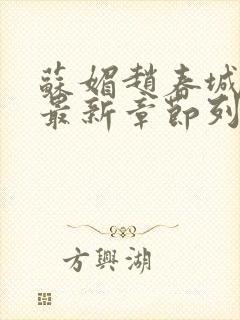 蘇媚趙春城
最新章節列
方興湖